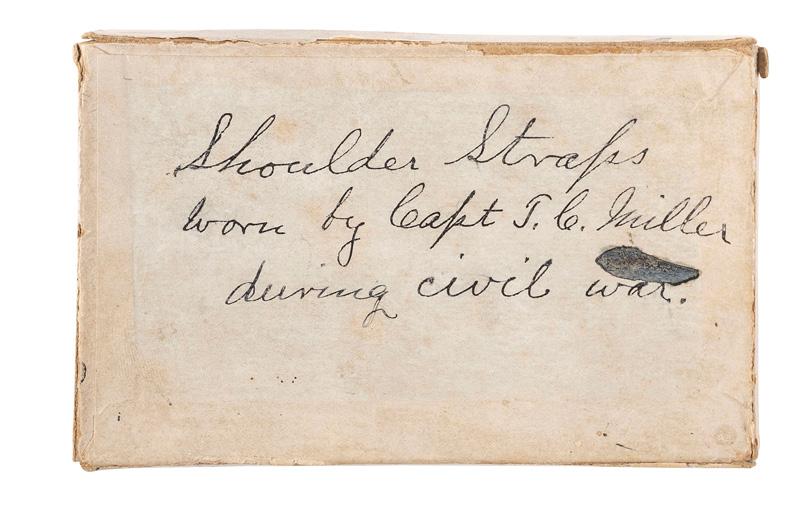 Shoulder Straps
worn by Capt T. C. Miller
during civil war.